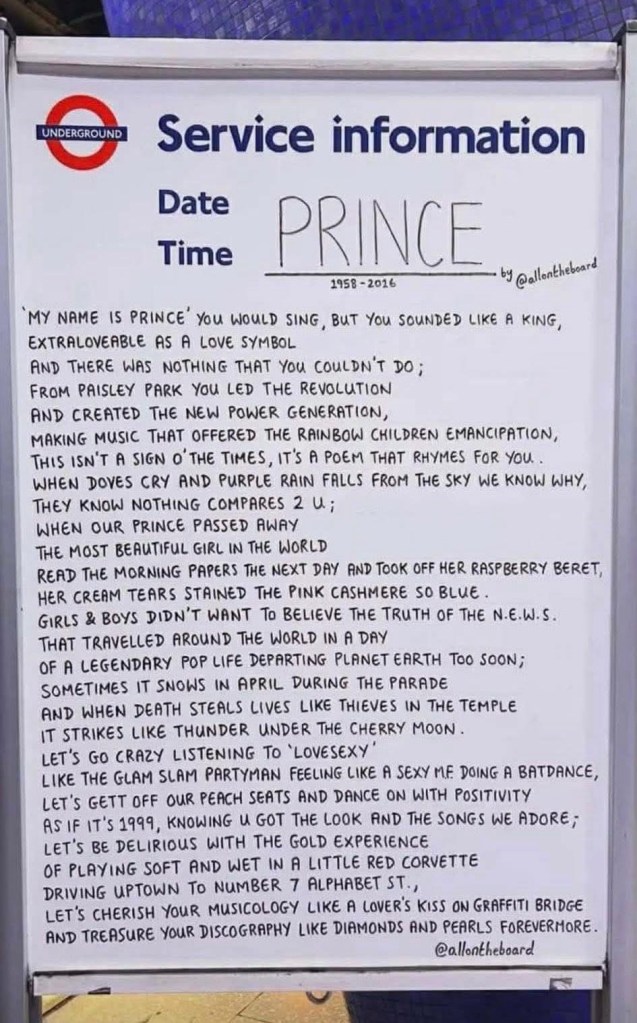 UNDERGROUND
Service information
Date
Time
PRINCE
1958 - 2016
by @allontheboard
'MY NAME IS PRINCE' YOU WOULD SING, BUT YOU SOUNDED LIKE A KING,
EXTRALOVEABLE AS A LOVE SYMBOL
AND THERE WAS NOTHING THAT YOU COULDN'T DO;
FROM PAISLEY PARK YOU LED THE REVOLUTION
AND CREATED THE NEW POWER GENERATION,
MAKING MUSIC THAT OFFERED THE RAINBOW CHILDREN EMANCIPATION,
THIS ISN'T A SIGN O' THE TIMES, IT'S A POEM THAT RHYMES FOR YOU.
WHEN DOVES CRY AND PURPLE RAIN FALLS FROM THE SKY WE KNOW WHY,
THEY KNOW NOTHING COMPARES 2 U;
WHEN OUR PRINCE PASSED AWAY
THE MOST BEAUTIFUL GIRL IN THE WORLD
READ THE MORNING PAPERS THE NEXT DAY AND TOOK OFF HER RASPBERRY BERET,
HER CREAM TEARS STAINED THE PINK CASHMERE SO BLUE.
GIRLS & BOYS DIDN'T WANT TO BELIEVE THE TRUTH OF THE N.E.W.S.
THAT TRAVELLED AROUND THE WORLD IN A DAY
OF A LEGENDARY POP LIFE DEPARTING PLANET EARTH TOO SOON;
SOMETIMES IT SNOWS IN APRIL DURING THE PARADE
AND WHEN DEATH STEALS LIVES LIKE THIEVES IN THE TEMPLE
IT STRIKES LIKE THUNDER UNDER THE CHERRY MOON.
LET'S GO CRAZY LISTENING TO 'LOVESEXY'
LIKE THE GLAM SLAM PARTYMAN FEELING LIKE A SEXY M.F. DOING A BATDANCE,
LET'S GETT OFF OUR PEACH SEATS AND DANCE ON WITH POSITIVITY
AS IF IT'S 1999, KNOWING U GOT THE LOOK AND THE SONGS WE ADORE;
LET'S BE DELIRIOUS WITH THE GOLD EXPERIENCE
OF PLAYING SOFT AND WET IN A LITTLE RED CORVETTE
DRIVING UPTOWN TO NUMBER 7 ALPHABET ST.,
LET'S CHERISH YOUR MUSICOLOGY LIKE A LOVER'S KISS ON GRAFFITI BRIDGE
AND TREASURE YOUR DISCOGRAPHY LIKE DIAMONDS AND PEARLS FOREVERMORE.
@allontheboard